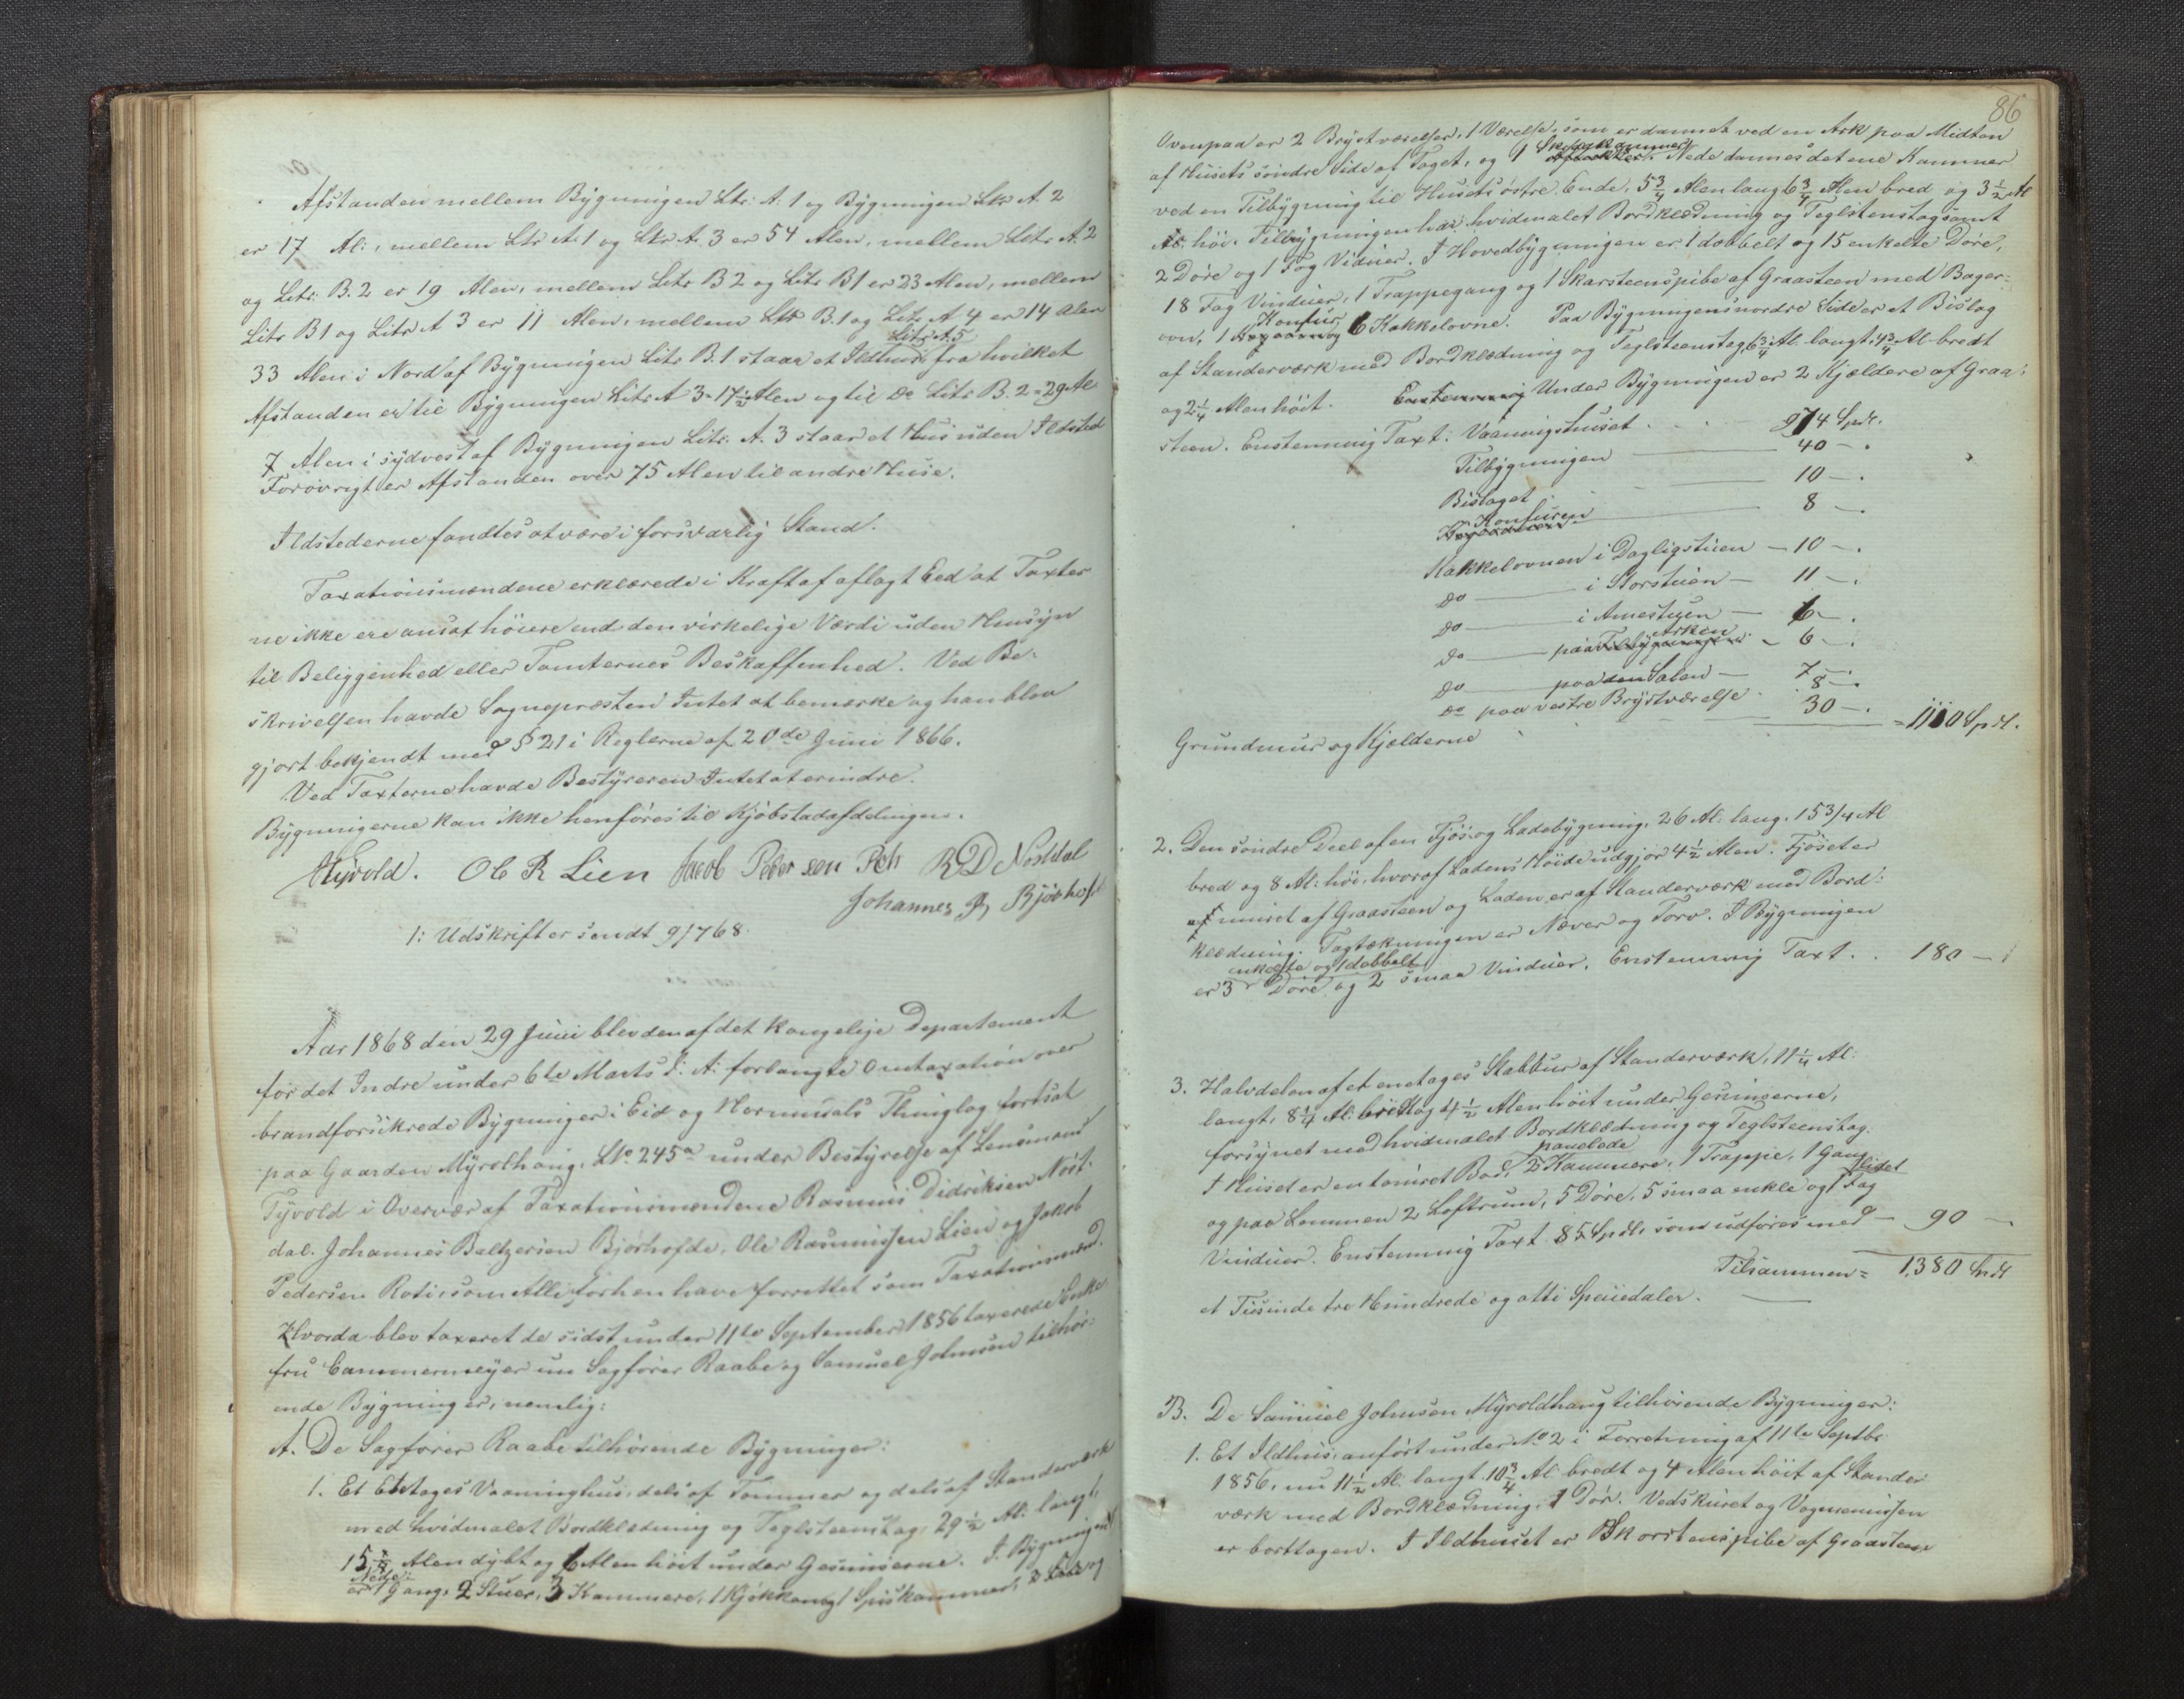 Afstanden mellem Bygningen Ltr: A. 1 og Bygningen Ltr A. 2
er 17 Al:, mellem Ltr A. 1 og Ltr A. 3 er 54 Alen, mellem Litr A. 2
og Litr: B. 2 er 19 Alen, mellem Litr B 2 og Litr B 1 er 23 Alen, mellem
Litr B1 og Litr A 3 er 11 Alen, mellem Litr B. 1 og Litr A. 4 er 14 Alen
33 Alen i Nord af Bygningen Litr B. 1 staar et Ildhus Litr A. 5 fra hvilket
Afstanden er til Bygningen Litr A 3 = 17 1/2 Alen og til Do Litr B. 2 = 29 Al
7 Alen i sydvest af Bygningen Litr. A. 3 staar et Hus uden Ildsted
Forøvrigt er Afstanden over 75 Alen til andre Huse.
Ildstederne fandtes at være i forsvarlig Stand.
Taxationsmændene erklærede i Kraft af aflagt Eed at Taxter
ne ikke ere ansat høiere end den virkelige Værdi uden Hensyn
til Beliggenhed eller Tomternes Beskaffenhed. Ved Be-
skrivelsen havde Sognepræsten Intet at bemærke og han blev
gjort bekjendt med § 21 i Reglerne af 20de Juni 1866.
Ved Taxterne havde Bestyreren Intet at erindre.
Bygningerne kan ikke henføres til Kjøbstadafdelingen.
Ole R Lien Jacob Peder sen R D Nøstdal
Johannes B Bjørhofd
1: Udskrift er sendt 9/7 68.
Aar 1868 den 29 Juni blev den af det kongelige Departement
for det Indre under 6te Marts d: A: forlangte Omtaxation over
brandforsikrede Bygninger i Eid og Hornindals Thinglag fortsat
paa Gaarden Myroldhaug, LNo. 245a under Bestyrelse af Lensmand
Tyvold i Overvær af Taxationsmændene Rasmus Didriksen Nøst-
dal. Johannes Baltzersen Bjørhofde, Ole Rasmussen Lien og Jakob
Pedersen Roti, som Alle forhen have forrettet som Taxationsmænd.
Hvorda blev taxeret de sidst under 11te September 1856 taxerede Enke
fru Cammermeyer nu Sagfører Raabe og Samuel Johnsen tilhør-
ende Bygninger, nemlig:
A. De Sagfører Raabe tilhørende Bygninger:
1. Et Etetages Vaaninghus, dels af Tømmer og dels af Standerværk
med hvidmalet Bordklædning og Teglsteenstag, 29 1/2 Al: langt,
15 1/4 Alen dybt og 6 Alen høit under Gesimserne. I Bygningen
er Nede: 1 Gang, 2 Stuer, 3 Kammere, 1 Kjøkken og 1 Spiskammer,
86
Ovenpaa er 2 Brystværelser, 1 Værelse, som er dannet ved en Ark paa Midten
af Husets søndre Side af Taget, og 1 Skapkammer. Nede dannes det ene Kammer
ved en Tilbygning til Husets østre Ende, 5 3/4 Alen lang 6 3/4 Alen bred og 3 1/2 Al
Al: høi. Tilbygningen har hvidmalet Bordklædning og Teglstenstag samt
2 Døre og 1 Fag Viduer. I Hovedbygningen er 1 dobbelt og 15 enkelte Døre,
18 Fag Vinduer, 1 Trappegang og 1 Skarsteenspibe af Graasteen med Bager-
ovn, 1 Komfur 6 Kakkelovne. Paa Bygningens nordre Side er et Bislag
af Standerværk med Bordklædning og Teglsteenstag, 6 3/4 Al. langt, 4 3/4 Al bredt
og 2 1/4 Alen høit. Enstemmig Under Bygningen er 2 Kjældere af Graa-
steen. Enstemmig Taxt: Vaaningshuset 974 Spdlr.
Tilbygningen 40 —.
Bislaget 10 —.
Komfuren 8 —.
Kakkelovnen i Dagligstuen — 10 —.
Do — i Storstuen — 11 —.
Do — i Amestuen — 6 —.
Do — paa Arken — 6 —.
Do — paa den Salen — 7 —.
Do paa vestre Brystværelse 8 —.
Grundmur og Kjælderne 30 —. = 1110 Spdl.
2. Den søndre Deel af en Fjøs og Ladebygning, 26 Al: lang, 15 3/4 Al
bred og 8 Al: høi, hvoraf Ladens Høide udgjør 4 1/2 Alen. Fjøset er
af muret af Graasteen og Laden er af Standerværk med Bord-
klædning. Tagtækningen er Næver og Torv. I Bygningen
er 3 enkelte og 1 dobbelt Døre og 2 smaa Vinduer. Enstemmig Taxt . . 180 —
3. Halvdelen af et enetages Stabbur af Standerværk, 11 1/4 Al:
langt, 8 1/4 Al: bredt og 4 1/2 Alen høit under Gesimserne,
forsynet med hvidmalet Bordklædning og Teglsteenstag.
I Huset er en tømret Bod, 2 panelede Kammere, 1 Trappe, 1 Gang
og paa Lemmen 2 Loftrum, 5 Døre, 5 smaa enkle og 1 lidet Fag
Vinduer. Enstemmig Taxt 85 Spdlr som udføres med — 90 —
Tilsammen = 1,380 Spdl
et Tusinde tre Hundrede og otti Speciedaler.
B. De Samuel Johnsen Myroldhaug tilhørende Bygninger:
1. Et Ildhus, anført under No 2 i Forretning af 11te Septbr
1856, nu 11 1/2 Al: langt, 10 3/4 Al bredt og 4 Alen høit af Stander
værk med Bordklædning, 1 Dør. Vedskuret og Vognremissen
er borttagen. I Ildhuset er 1 Skorstenspibe af Graasteen